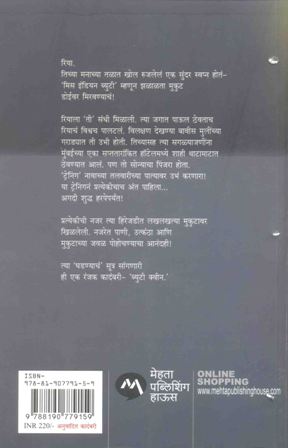 रिया.
तिच्या मनाच्या तळात खोल रुजलेलं एक सुंदर स्वप्न होतं-
'मिस इंडियन ब्युटी' म्हणून झळाळता मुकुट
डोईवर मिरवण्याचं!
रियाला 'ती' संधी मिळाली. त्या जगात पाऊल ठेवताच
रियाचं विश्वच पालटलं. विलक्षण देखण्या बावीस मुलींच्या
गराड्यात ती उभी होती. तिच्यासह त्या सगळ्याजणींना
मुंबईच्या एका सप्ततारांकित हॉटेलमध्ये शाही थाटामाटात
ठेवण्यात आलं. पण तो सोन्याचा पिंजरा होता.
'ट्रेनिंग' नावाच्या तलवारीच्या पात्यावर उभं करणारा!
या ट्रेनिंगनं प्रत्येकीचाच अंत पाहिला...
अगदी शुद्ध हरपेपर्यंत!
प्रत्येकीची नजर त्या हिरेजडीत लखलखत्या मुकुटावर
खिळलेली. नजरेत पाणी, उत्कंठा आणि
मुकुटाच्या जवळ पोहोचण्याचा आनंदही!
त्या 'घडण्याचं' सूत्र सांगणारी
ही एक रंजक कादंबरी- 'ब्युटी क्वीन.'
ISBN-
978-81-907791-5-9
9 788190 779159
INR 220/- अनुवादित कादंबरी
मेहता
पब्लिशिंग
हाऊस
ONLINE
SHOPPING
www.mehtapublishinghouse.com